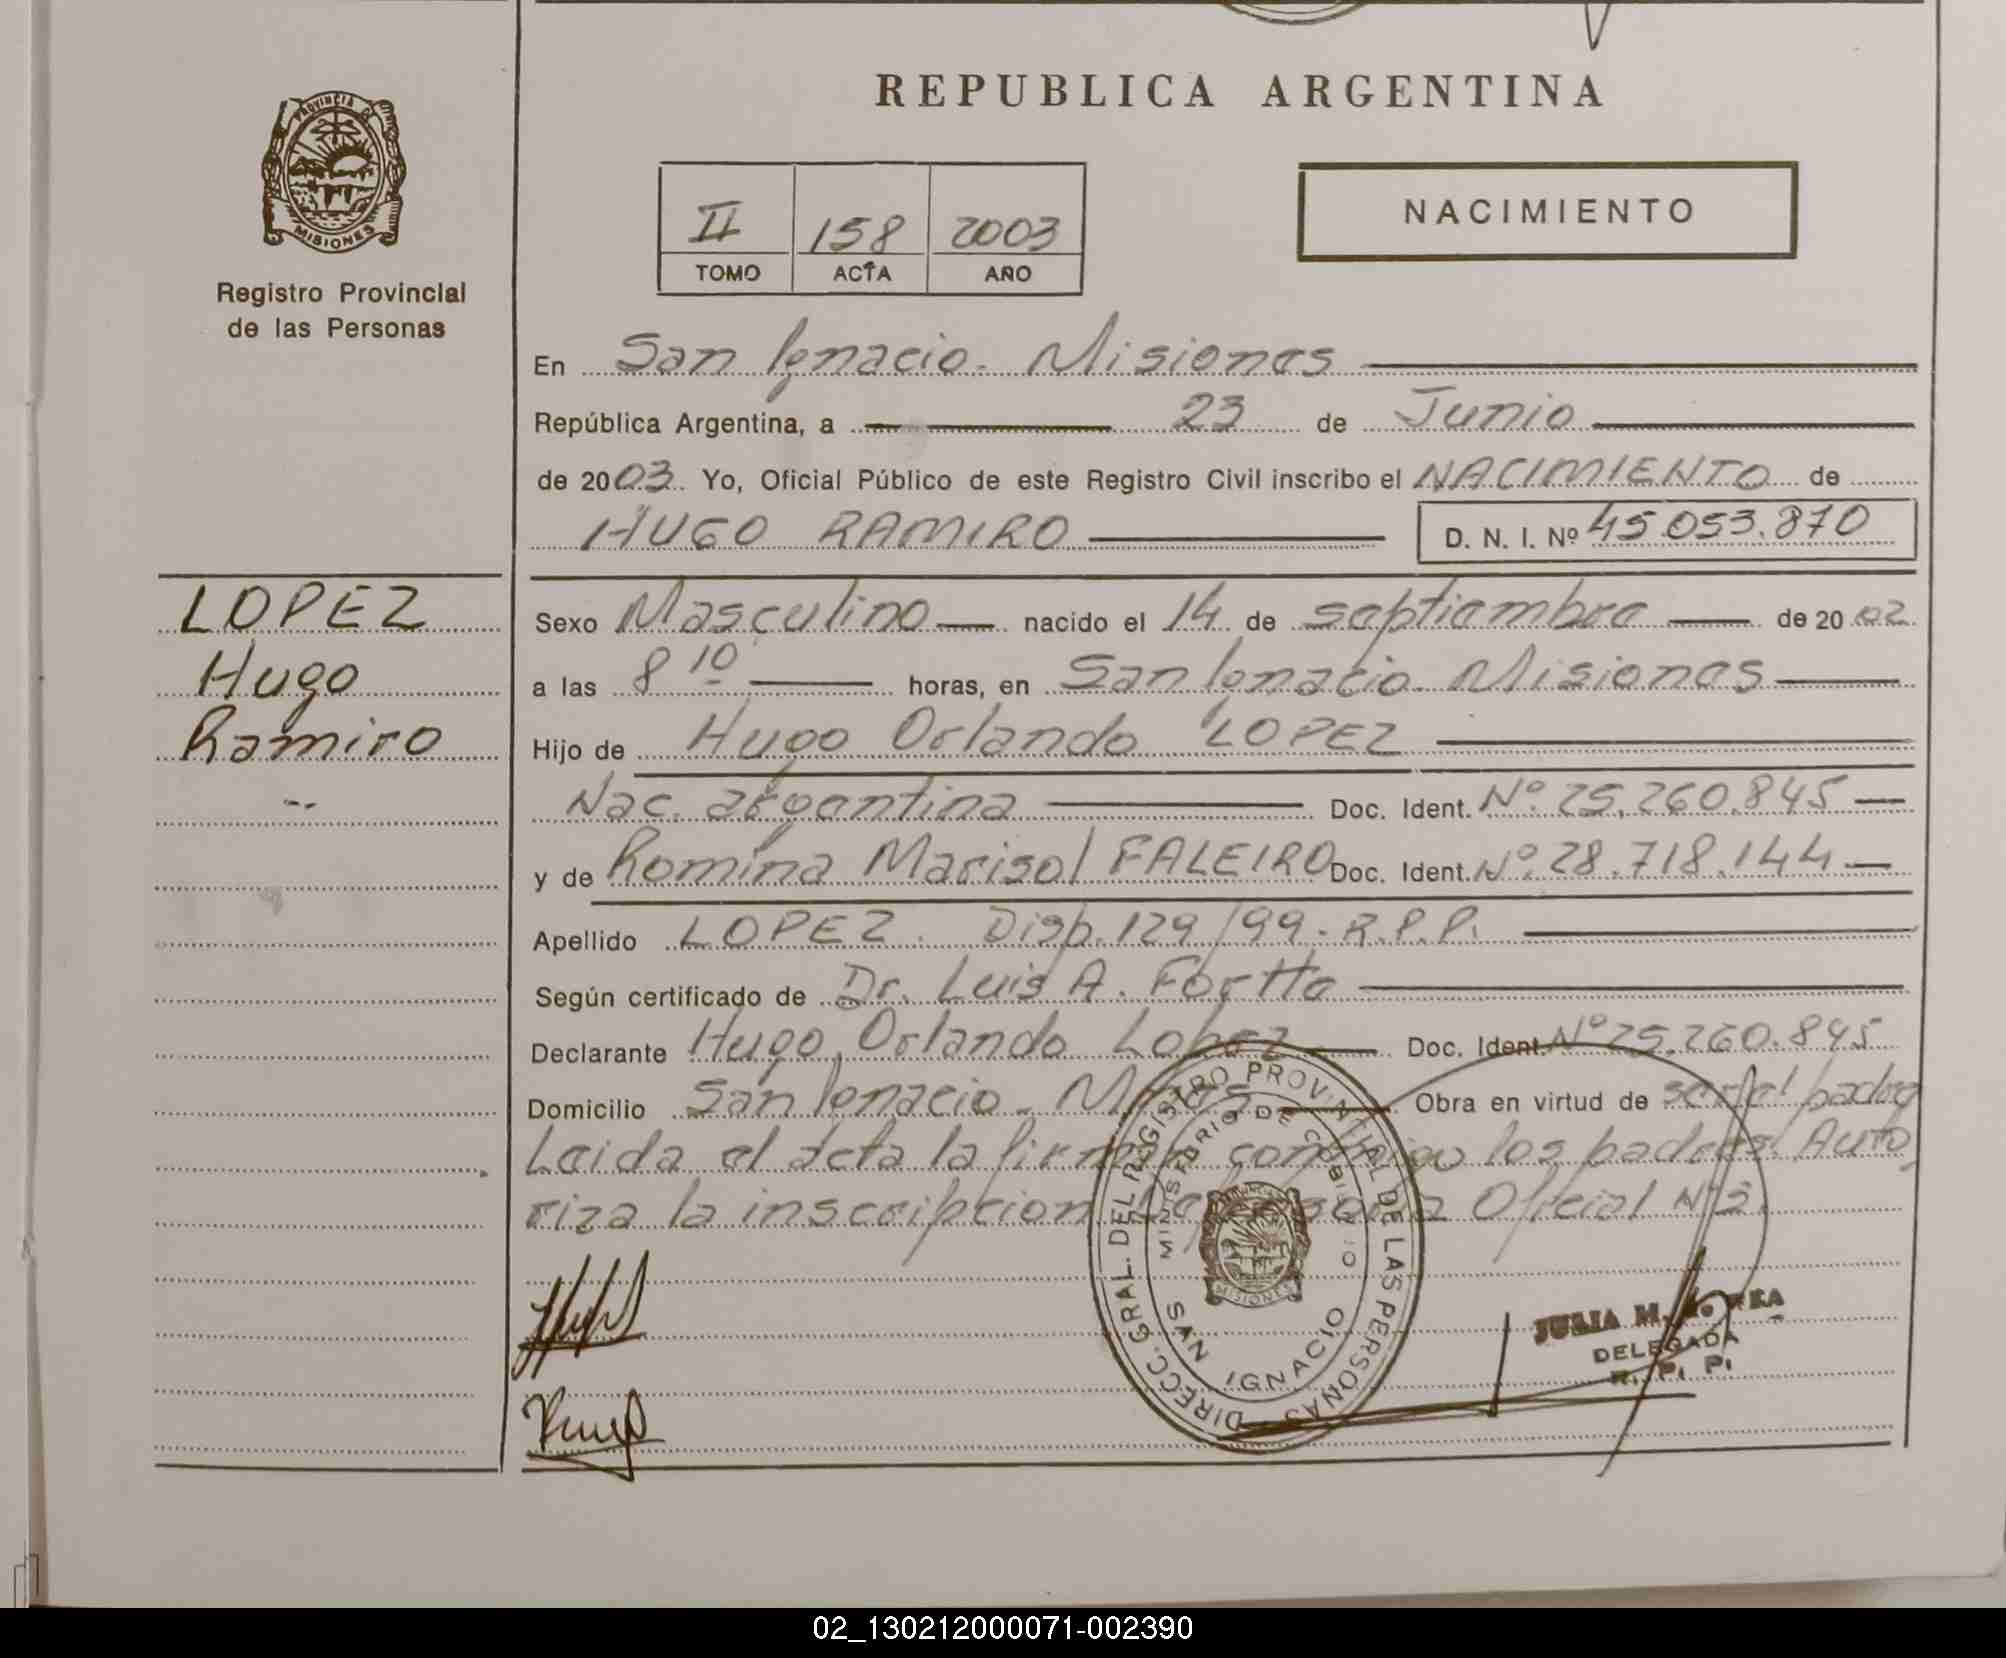 REPUBLICA ARGENTINA
PROVINCIA DE
MISIONES
Registro Provincial
de las Personas
II 158 2003
TOMO ACTA AÑO
NACIMIENTO
En San Ignacio - Misiones
República Argentina, a 23 de Junio
de 2003 Yo, Oficial Público de este Registro Civil inscribo el NACIMIENTO de
HUGO RAMIRO D. N. I. Nº 45.053.870
LOPEZ
Hugo
Ramiro
Sexo Masculino nacido el 14 de septiembre de 2002
a las 8 10 horas, en San Ignacio - Misiones
Hijo de Hugo Orlando LOPEZ
Nac. argentina Doc. Ident. Nº 25.260.845
y de Romina Marisol FALEIRO Doc. Ident. Nº 28.718.144
Apellido LOPEZ. Disp. 129/99 - R.P.P.
Según certificado de Dr. Luis A.
Declarante Hugo Orlando Lopez Doc. Ident. Nº 25.260.845
Domicilio San Ignacio - Mnes Obra en virtud de ser el padre
Leida el acta la firman conmigo los padres. Auto
riza la inscripcion Oficial Nº 3.
DIRECC. GRAL. DEL REGISTRO PROVINCIAL DE LAS PERSONAS
MINISTERIO DE GOBIERNO
MISIONES
SAN IGNACIO
JULIA M.
DELEGADA
R. P. P.
02_130212000071-002390